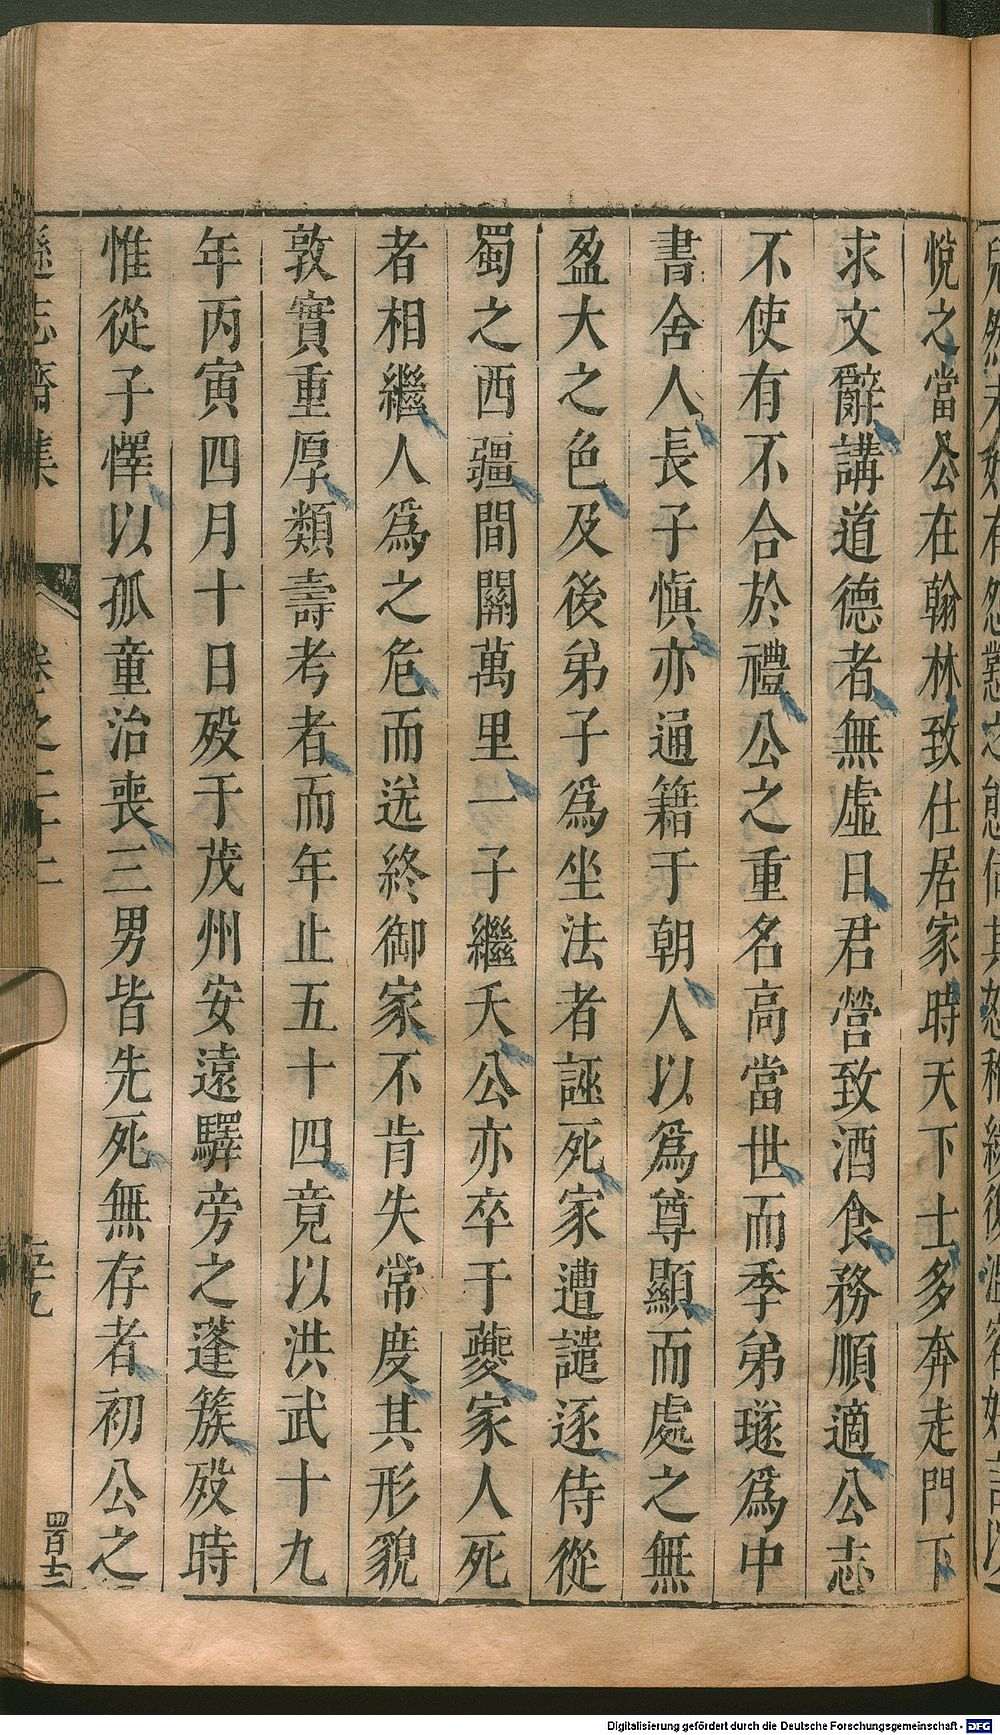 悅之當公在翰林致仕居家時天下士多奔走門下
求文辭講道德者無虛日君營致酒食務順適公志
不使有不合於禮公之重名高當世而季弟璲為中
書舍人長子慎亦通籍于朝人以為尊顯而處之無
盈大之色及後弟子為坐法者誣死家遭譴逐侍從
蜀之西疆間關萬里一子繼夭公亦卒于夔家人死
者相繼人為之危而送終御家不肯失常度其形貌
敦實重厚類壽考者而年止五十四竟以洪武十九
年丙寅四月十日歿于茂州安遠驛旁之蓬簇歿時
惟從子懌以孤童治喪三男皆先死無存者初公之
遜志齋集
卷之二十二
五九
四百十二
Digitalisierung gefördert durch die Deutsche Forschungsgemeinschaft - DFG